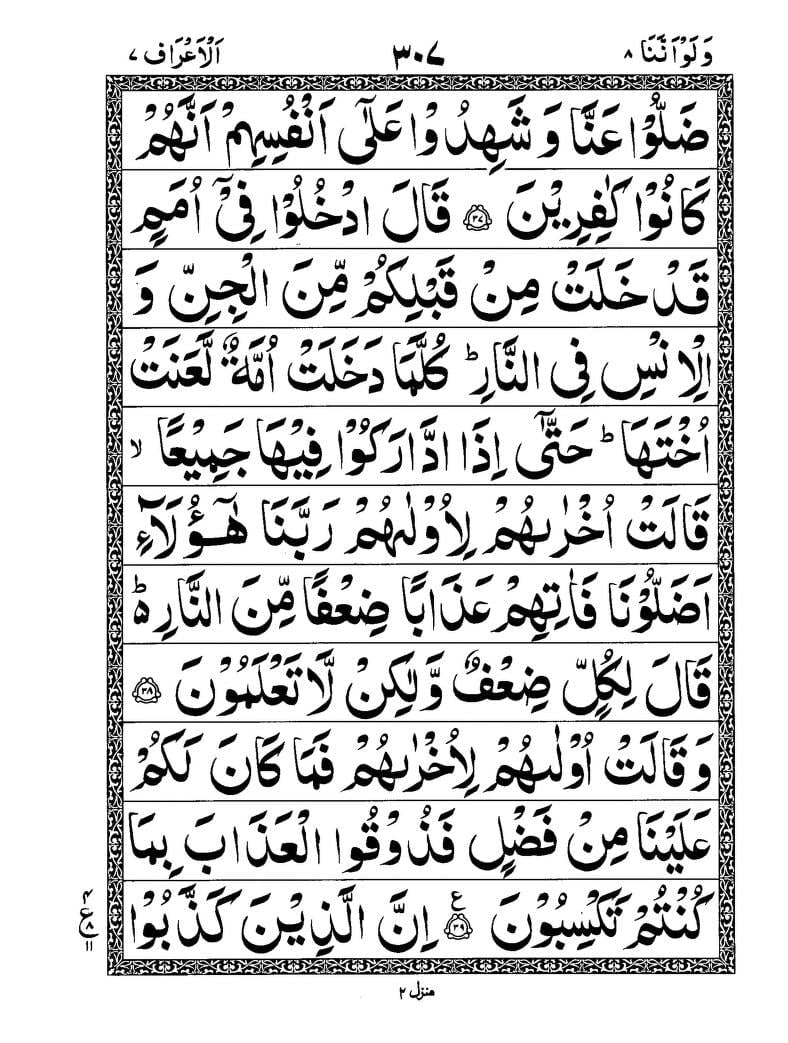 وَلَوْاَنَّنَا ٨
٣٠٧
اَلْاَعْرَاف ٧
ضَلُّوْا عَنَّا وَ شَهِدُوْا عَلٰۤى اَنْفُسِهِمْ اَنَّهُمْ
كَانُوْا كٰفِرِيْنَ ۝٣٧ قَالَ ادْخُلُوْا فِىْۤ اُمَمٍ
قَدْ خَلَتْ مِنْ قَبْلِكُمْ مِّنَ الْجِنِّ وَ
الْاِنْسِ فِى النَّارِ ؕ كُلَّمَا دَخَلَتْ اُمَّةٌ لَّعَنَتْ
اُخْتَهَا ؕ حَتّٰۤى اِذَا ادَّارَكُوْا فِيْهَا جَمِيْعًا ۙ
قَالَتْ اُخْرٰىهُمْ لِاُوْلٰىهُمْ رَبَّنَا هٰۤؤُلَاۤءِ
اَضَلُّوْنَا فَاٰتِهِمْ عَذَابًا ضِعْفًا مِّنَ النَّارِ ۬ؕ
قَالَ لِكُلٍّ ضِعْفٌ وَّلٰكِنْ لَّا تَعْلَمُوْنَ ۝٣٨
وَقَالَتْ اُوْلٰىهُمْ لِاُخْرٰىهُمْ فَمَا كَانَ لَكُمْ
عَلَيْنَا مِنْ فَضْلٍ فَذُوْقُوا الْعَذَابَ بِمَا
كُنْتُمْ تَكْسِبُوْنَ ۝٣٩ ع اِنَّ الَّذِيْنَ كَذَّبُوْا
٤
ع ٨
١١
منزل ٢